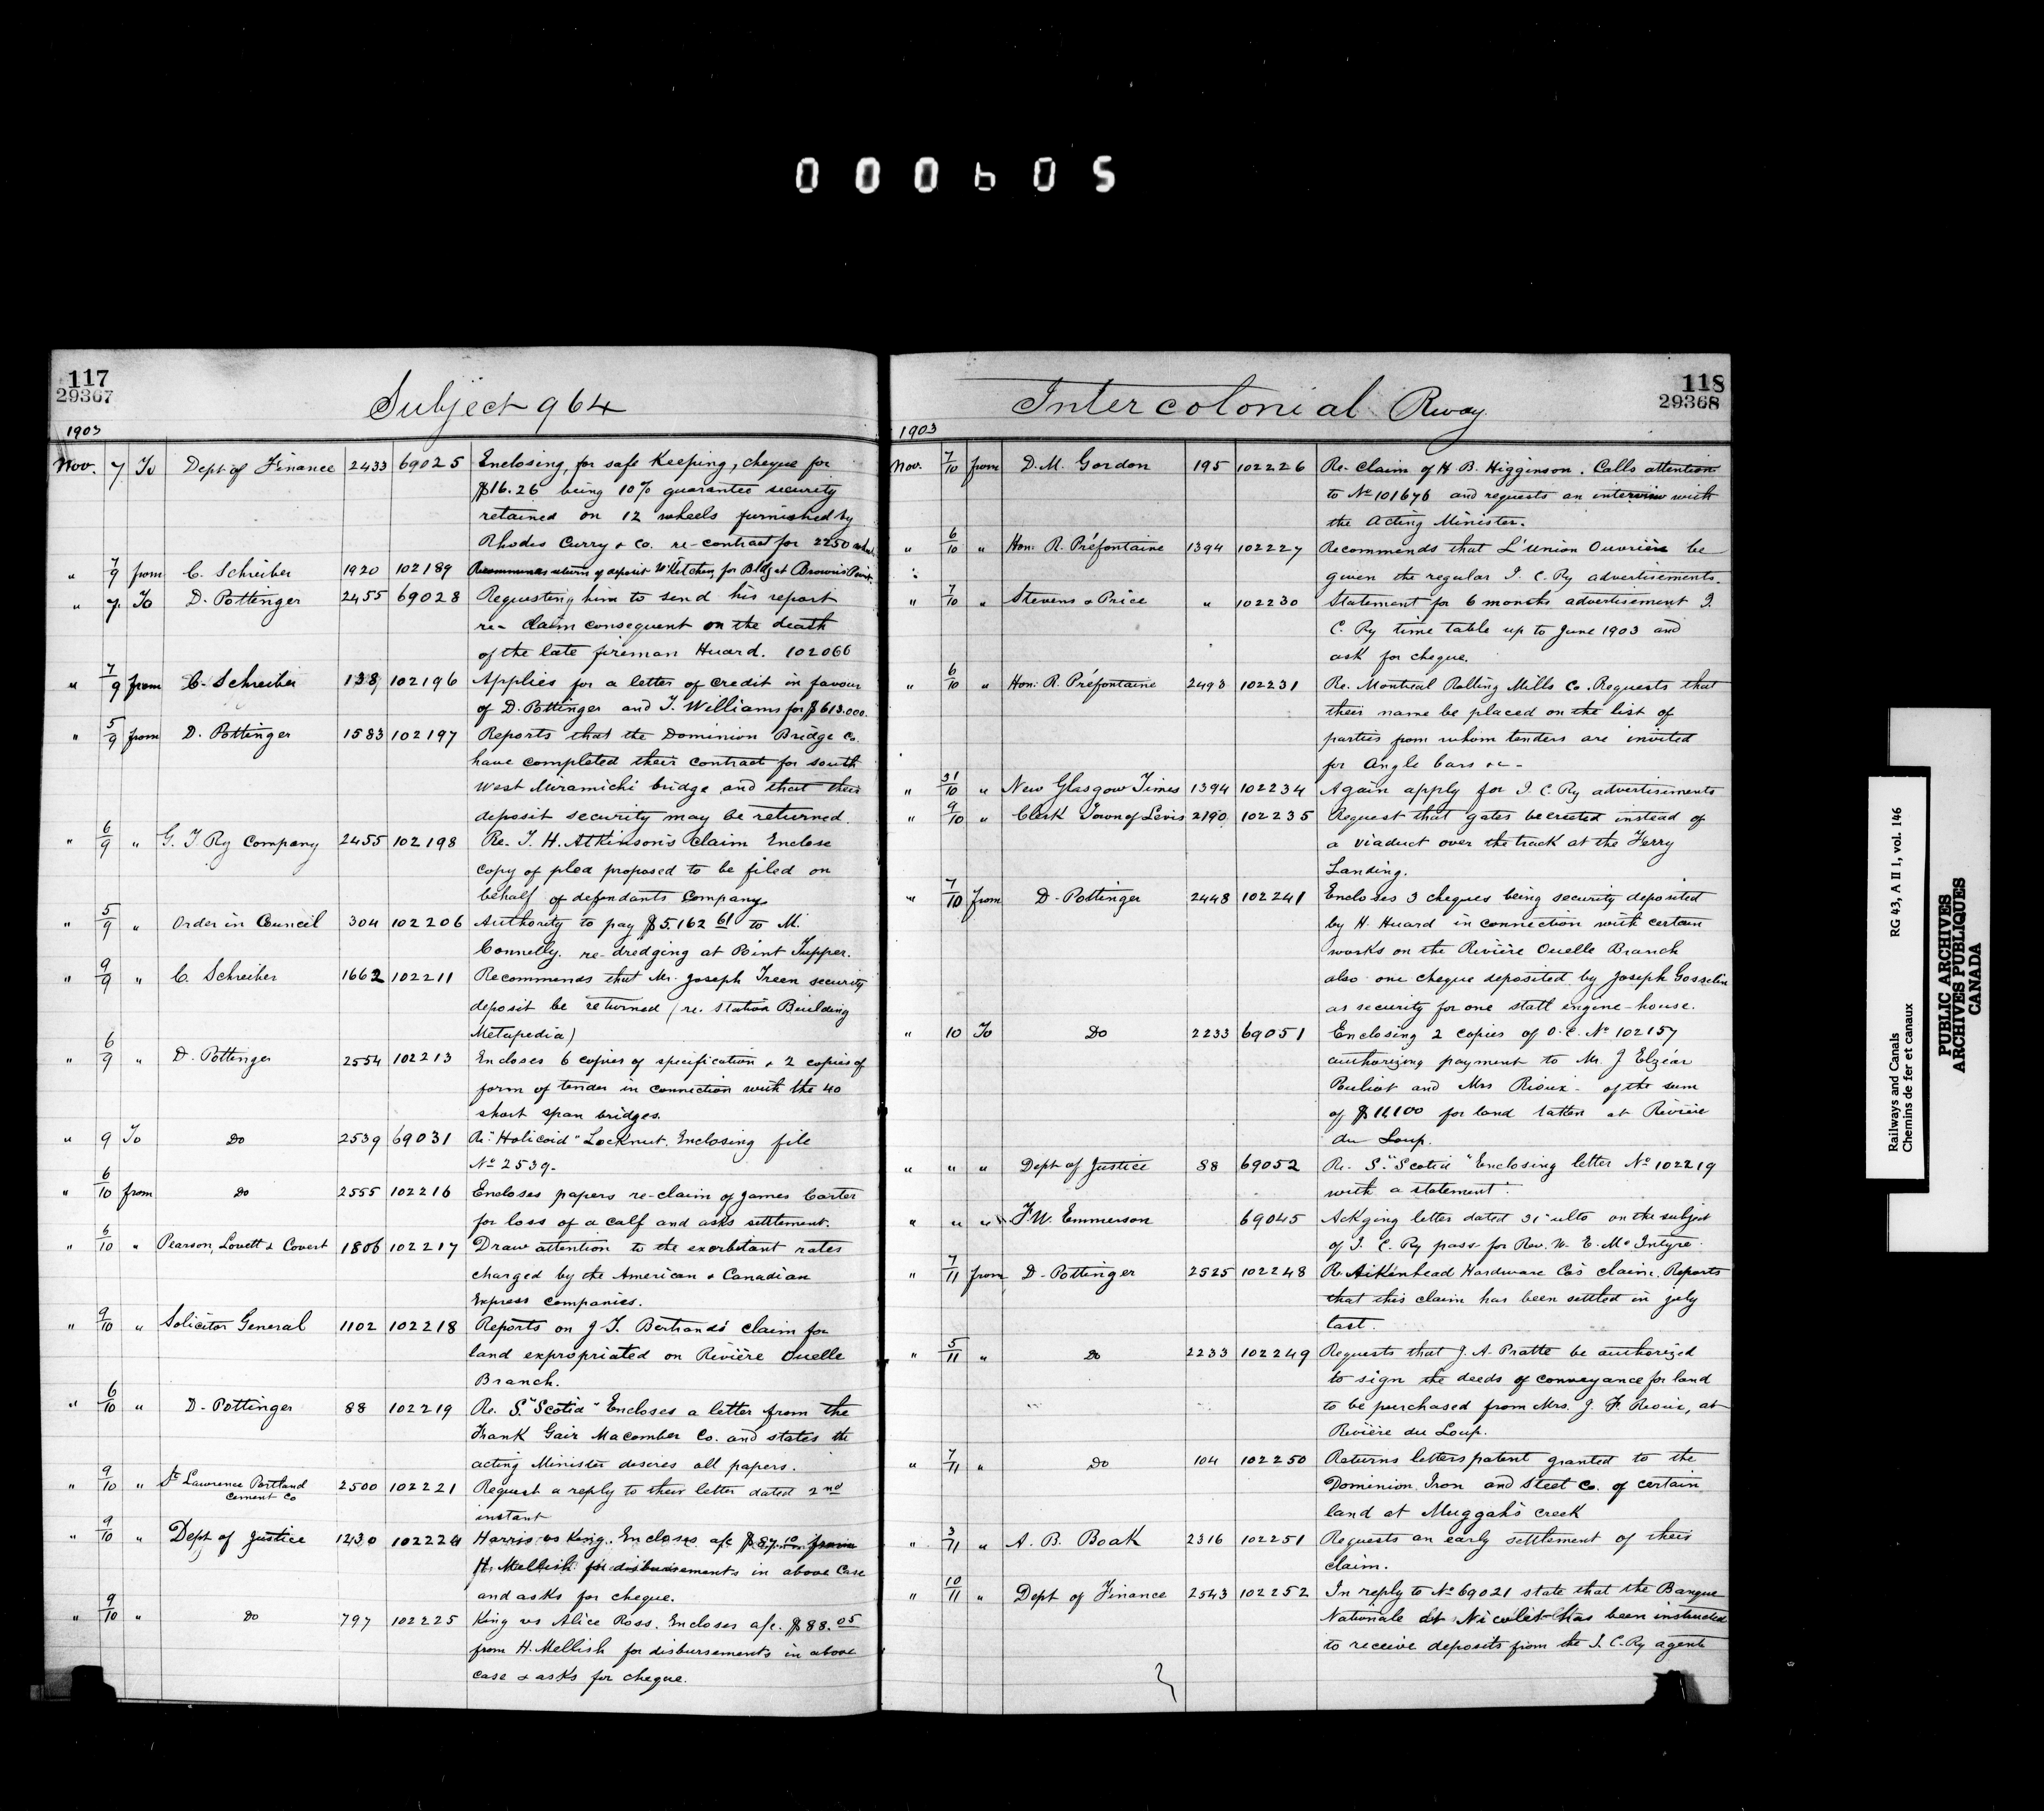 000605
117
29367
Subject 964
1903
Nov. 7 To Dept of Finance 2433 69025 Enclosing, for safe Keeping, cheque for
$16.26 being 10% guarantee security
retained on 12 wheels furnished by
Rhodes Curry & Co. re-contract for 2250
" 7/9 from C. Schreiber 1920 102189 Recommends return of deposit W Kitchen for Bldg at Brown's Point.
" 7. To D. Pottinger 2455 69028 Requesting him to send his report
re- Claim consequent on the death
of the late fireman Huard. 102066
" 7/9 from C. Schreiber 138 102196 Applies for a letter of credit in favour
of D. Pottinger and T. Williams for $613.000.
" 5/9 from D. Pottinger 1583 102197 Reports that the Dominion Bridge Co.
have completed their contract for south
West Miramichi bridge and that their
deposit security may be returned.
" 6/9 " G. T Ry Company 2455 102198 Re. T. H. Atkinson's Claim Enclose
copy of plea proposed to be filed on
behalf of defendants Company.
" 5/9 " Order in Council 304 102206 Authority to pay $5.162 61 to M.
Connelly. re-dredging at Point Tupper.
" 9/9 " C. Schreiber 1662 102211 Recommends that Mr. Joseph Treen security
deposit be returned (re. Station Building
Metapedia)
" 6/9 " D. Pottinger 2554 102213 Encloses 6 copies of specification & 2 copies of
form of tender in connection with the 40
short span bridges.
" 9 To Do 2539 69031 Re "Holicoid" Locknut. Enclosing file
No 2539.
" 6/10 from Do 2555 102216 Encloses papers re-claim of James Carter
for loss of a calf and asks settlement.
" 6/10 " Pearson, Lovett & Covert 1806 102217 Draw attention to the exorbitant rates
charged by the American & Canadian
Express Companies.
" 9/10 " Solicitor General 1102 102218 Reports on J T. Bertrand's claim for
land expropriated on Rivière Ouelle
Branch.
" 6/10 " D. Pottinger 88 102219 Re. S. "Scotia" Encloses a letter from the
Frank Gair Macomber Co. and states the
acting Minister desires all papers.
" 9/10 " St Lawrence Portland
Cement Co 2500 102221 Request a reply to their letter dated 2nd
instant
" 9/10 " Dept of Justice 1230 102224 Harris vs King. Encloses a/c $87.10 from
H. Mellish for disbursements in above Case
and asks for cheque.
" 9/10 " Do 797 102225 King vs Alice Ross. Encloses a/c. $88.05
from H. Mellish for disbursements in above
case & asks for cheque.
118
29368
Intercolonial Rway
1903
Nov. 7/10 from D. M. Gordon 195 102226 Re- Claim of H. B. Higginson. Calls attention
to No 101676 and requests an interview with
the Acting Minister.
" 6/10 " Hon: R. Préfontaine 1394 102227 Recommends that L'Union Ouvrière be
given the regular I. C. Ry advertisements.
" 7/10 " Stevens & Price " 102230 Statement for 6 months advertisement I.
C. Ry time table up to June 1903 and
ask for cheque.
" 6/10 " Hon: R. Préfontaine 2493 102231 Re. Montreal Rolling Mills Co. Requests that
their name be placed on the list of
parties from whom tenders are invited
for Angle bars &c-
" 31/10 " New Glasgow Times 1394 102234 Again apply for I. C. Ry advertisements
" 9/10 " Clerk Town of Levis 2190 102235 Request that gates be erected instead of
a viaduct over the track at the Ferry
Landing.
" 7/10 from D. Pottinger 2448 102241 Encloses 3 cheques being security deposited
by H. Huard in connection with certain
works on the Rivière Ouelle Branch
also one cheque deposited by Joseph Gosselin
as security for one stall engine-house.
" 10 To Do 2233 69051 Enclosing 2 copies of O. C. No 102157
authorizing payment to Mr. J Elzéar
Pouliot and Mrs Rioux - of the sum
of $11100 for land taken at Rivière
du Loup.
" " " Dept of Justice 88 69052 Re. S. "Scotia" Enclosing letter No 102219
with a statement.
" " " F. W. Emmerson 69045 Ackging letter dated 31 ulto on the subject
of I. C. Ry pass for Rev. W. E. McIntyre.
" 7/11 from D. Pottinger 2525 102248 Re. Aikenhead Hardware Co's claim. Reports
that this claim has been settled in July
last.
" 5/11 " Do 2233 102249 Requests that J. A. Pratte be authorized
to sign the deeds of conveyance for land
to be purchased from Mrs. J. F. Rioux, at
Rivière du Loup.
" 7/11 " Do 104 102250 Returns letters patent granted to the
Dominion Iron and Steel Co. of certain
land at Muggah's Creek
" 3/11 " A. B. Boak 2316 102251 Requests an early settlement of their
claim.
" 10/11 " Dept of Finance 2543 102252 In reply to No 69021 state that the Banque
Nationale at Nicolet has been instructed
to receive deposits from the I. C. Ry agent
Railways and Canals RG 43, A II 1, vol. 146
Chemins de fer et canaux
PUBLIC ARCHIVES
ARCHIVES PUBLIQUES
CANADA